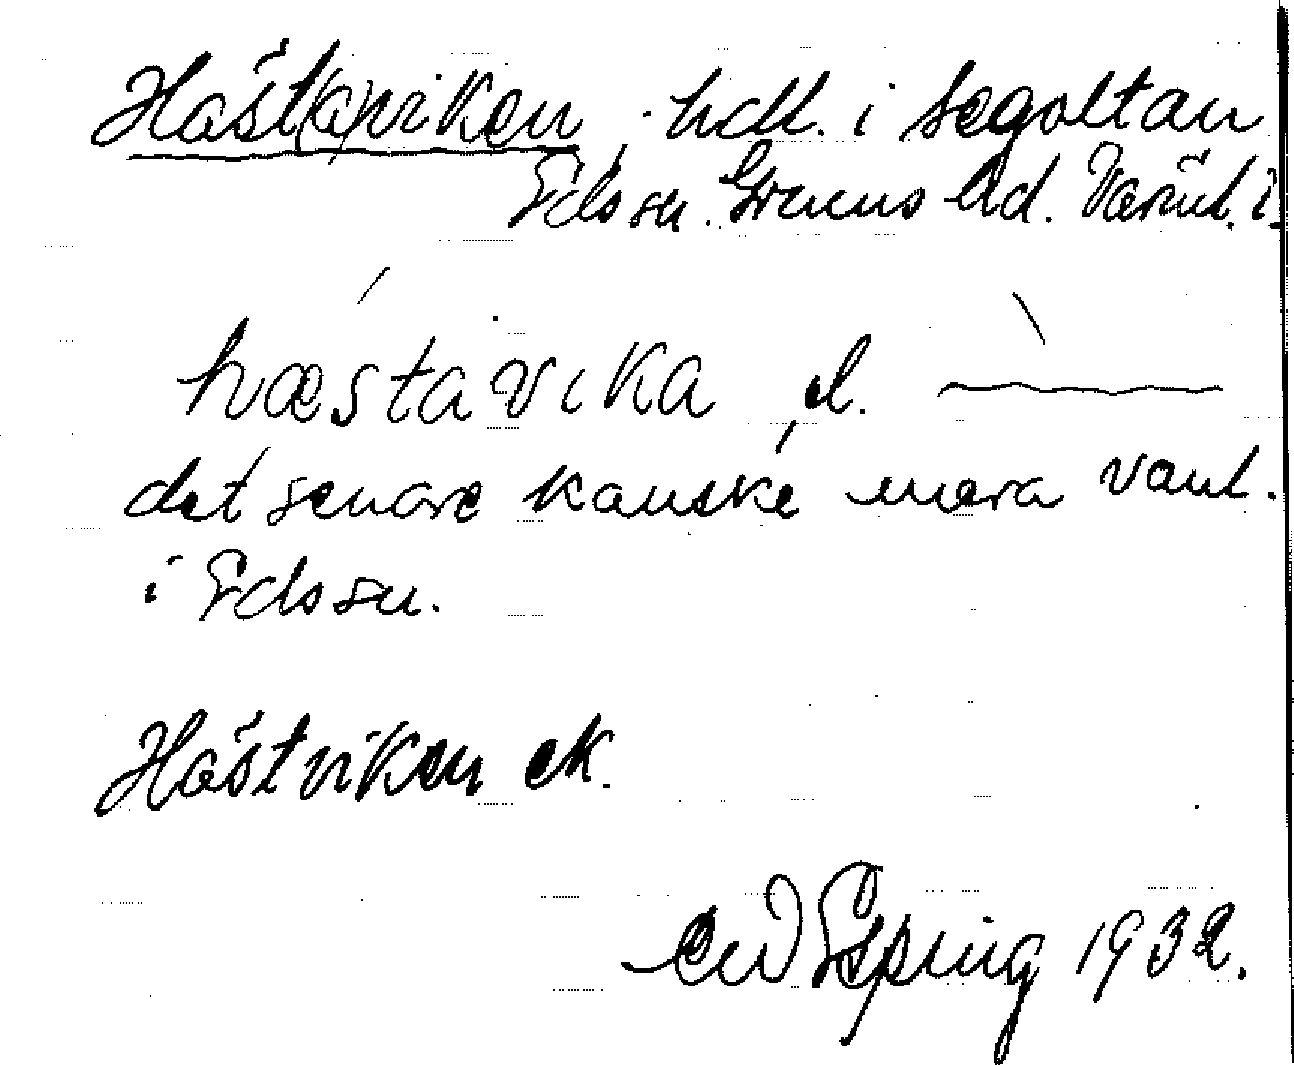 Häst(a)viken, hdl. i Segoltan
Eds sn. Grums hd. Värml. l.
hæstavika, el.
det senare kanske mera vanl.
i Eds sn.
Hästviken ek.
Esping 1932.